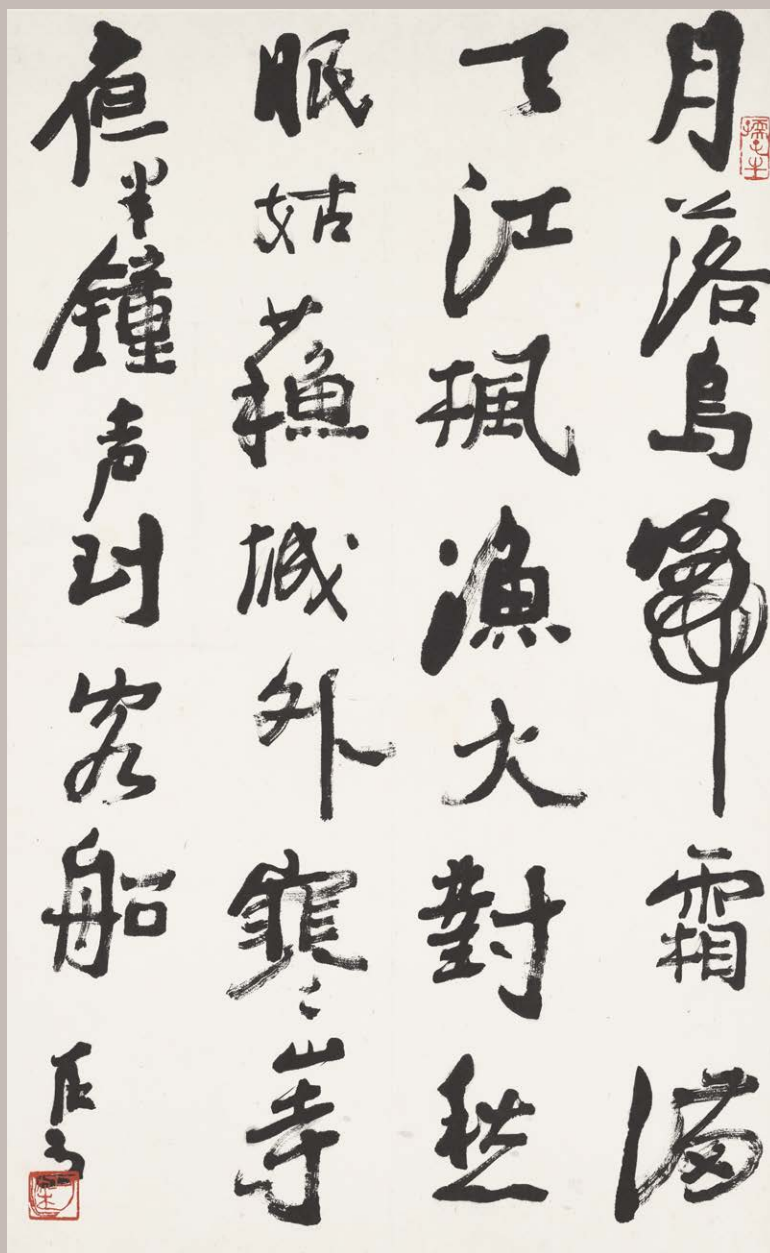 月落烏啼霜滿
天江楓漁火對愁
眠姑蘓城外寒山寺
夜半鐘声到客船